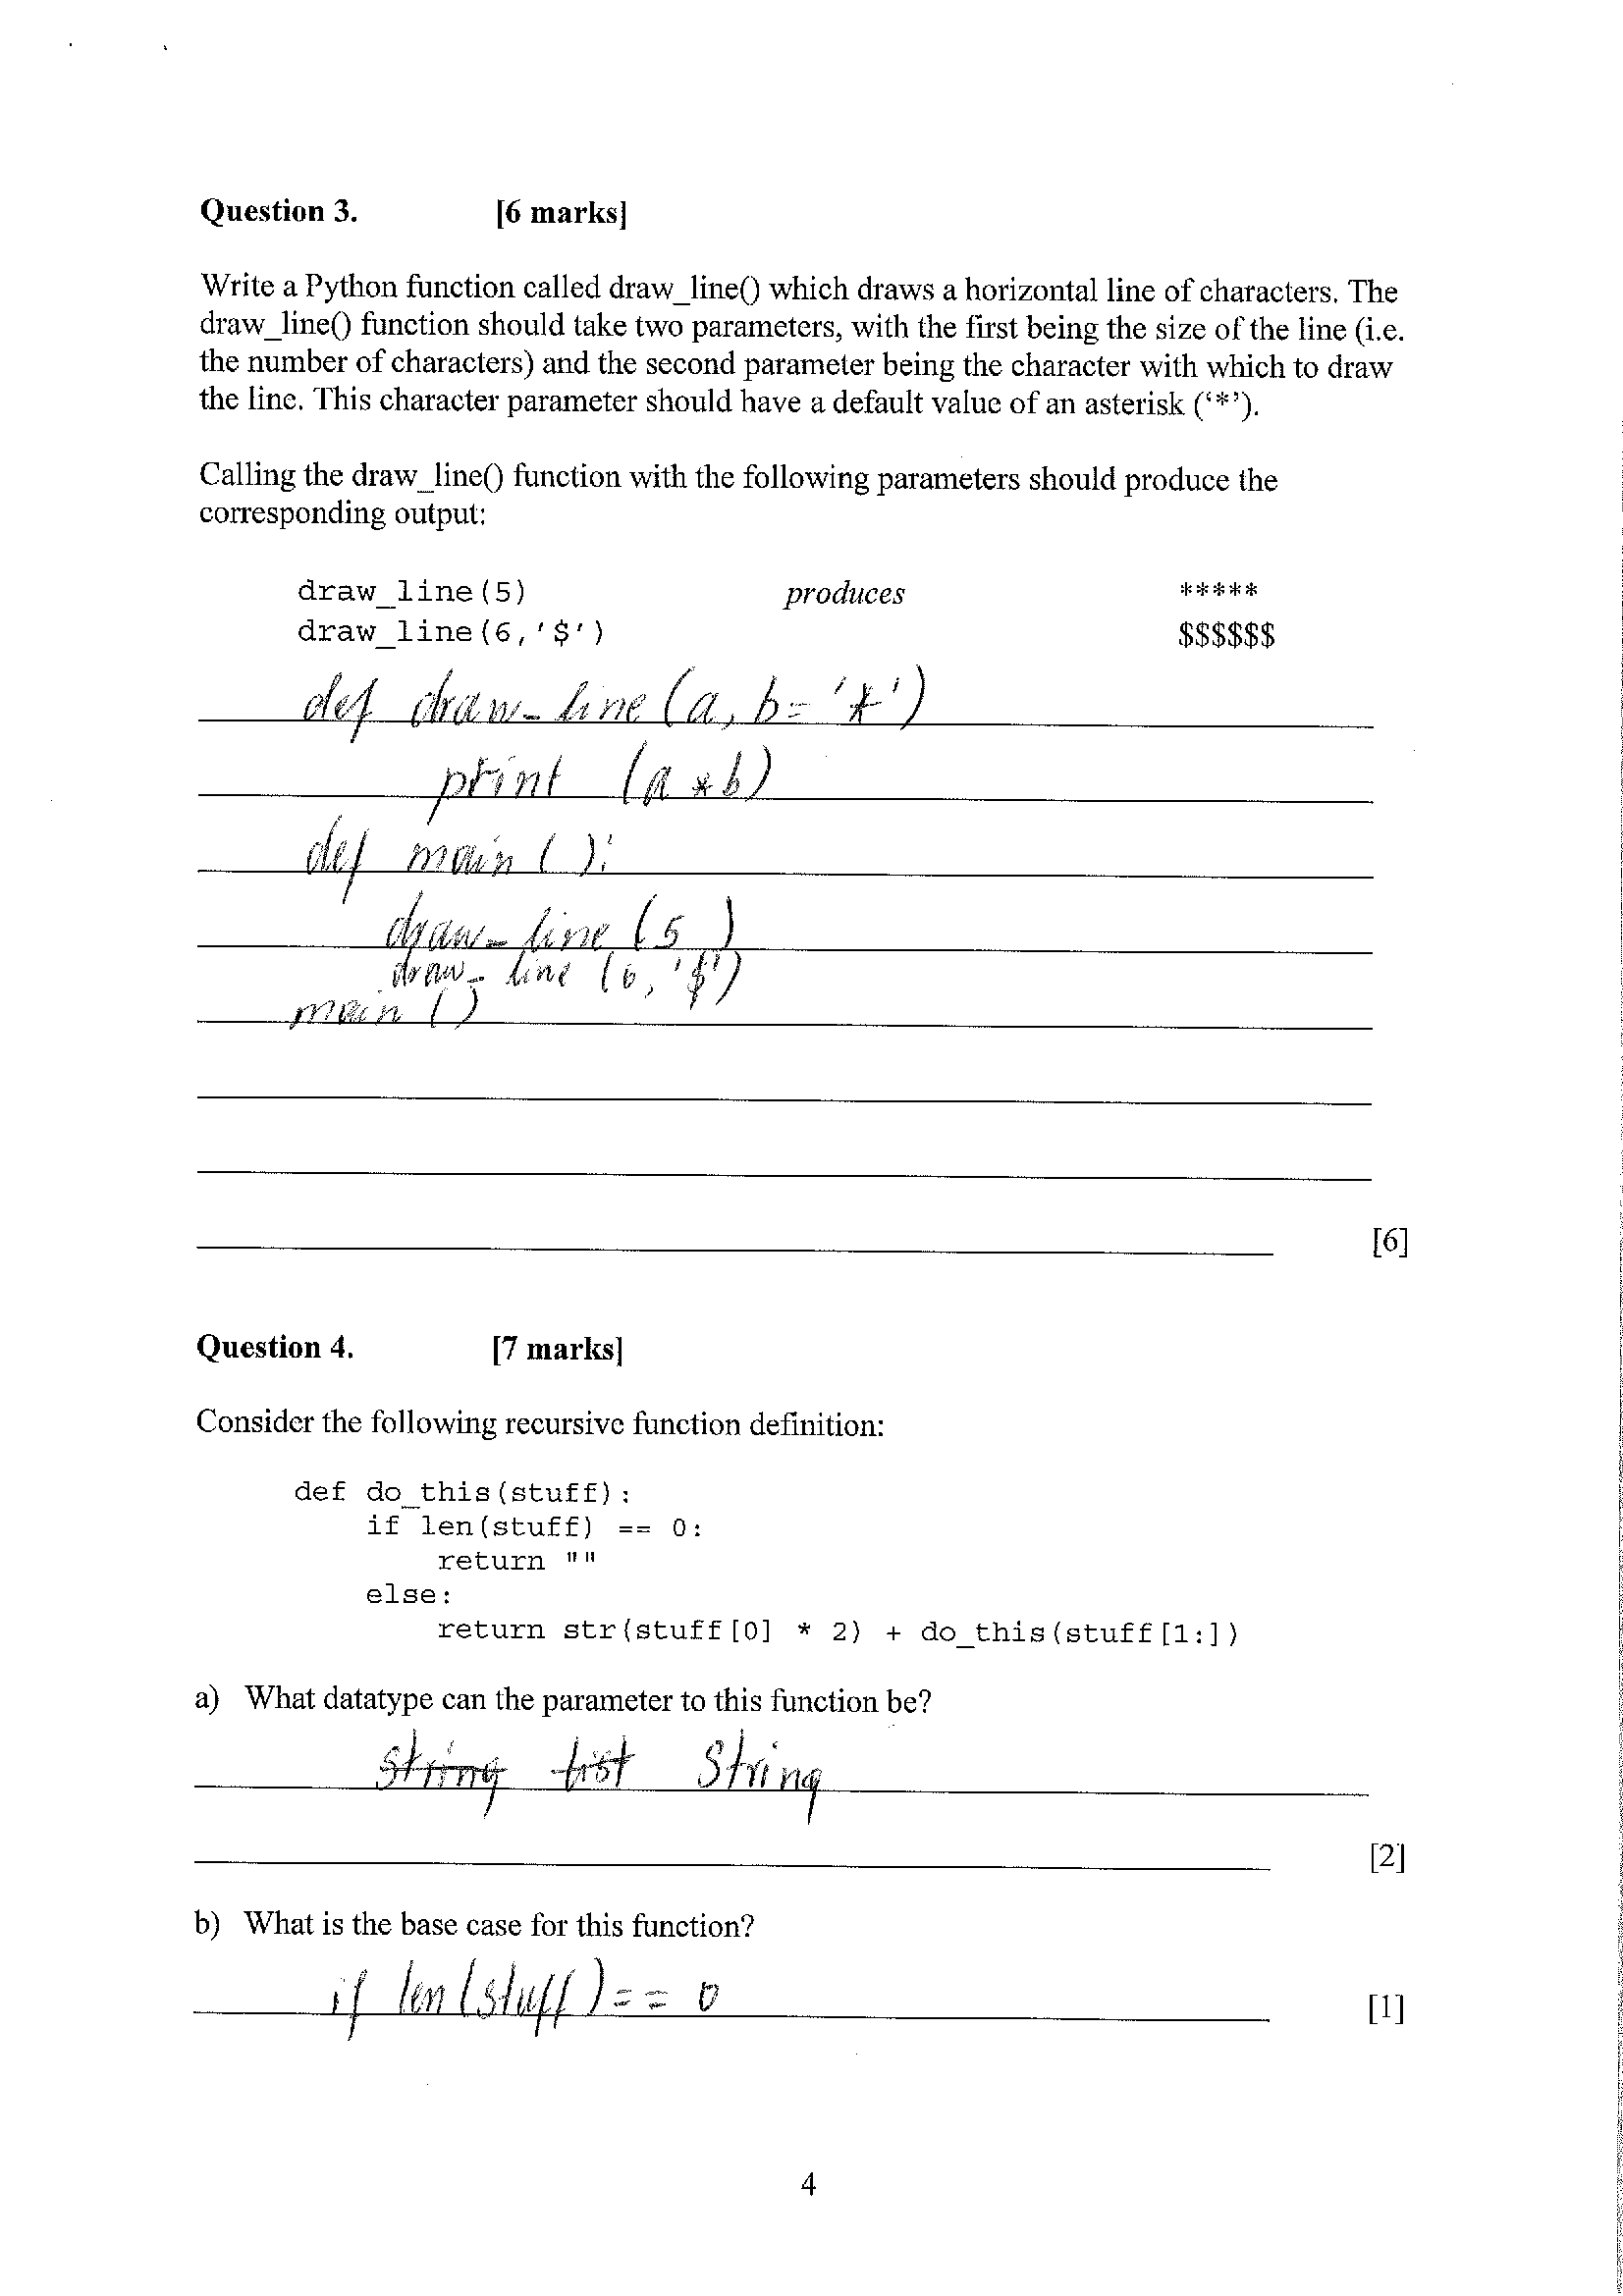 Question 3. [6 marks]
Write a Python function called draw_line() which draws a horizontal line of characters. The
draw_line() function should take two parameters, with the first being the size of the line (i.e.
the number of characters) and the second parameter being the character with which to draw
the line. This character parameter should have a default value of an asterisk (‘*’).
Calling the draw_line() function with the following parameters should produce the
corresponding output:
draw_line(5) produces *****
draw_line(6,'$') $$$$$$
def draw_line (a, b= '*')
print (a * b)
def main ():
draw_line (5 )
draw_line (6, '$')
main ()
[6]
Question 4. [7 marks]
Consider the following recursive function definition:
def do_this(stuff):
if len(stuff) == 0:
return ""
else:
return str(stuff[0] * 2) + do_this(stuff[1:])
a) What datatype can the parameter to this function be?
string list String
[2]
b) What is the base case for this function?
if len(stuff) == 0
[1]
4